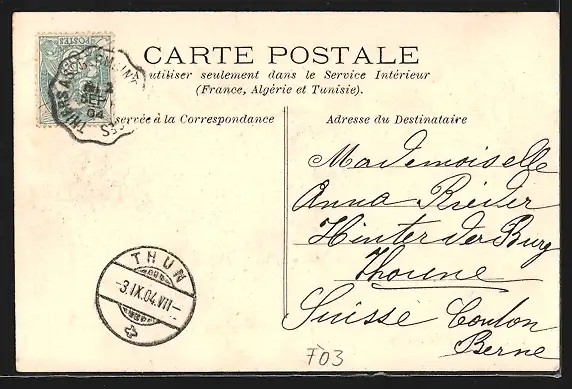 POSTES
CARTE POSTALE
A utiliser seulement dans le Service Intérieur
(France, Algérie et Tunisie).
servée à la Correspondance
Adresse du Destinataire
Mademoiselle
Anna Rieder
Hinter der Burg
Thoune
Suisse Conton
Berne
THUN
-3.IX.04.VII-
703